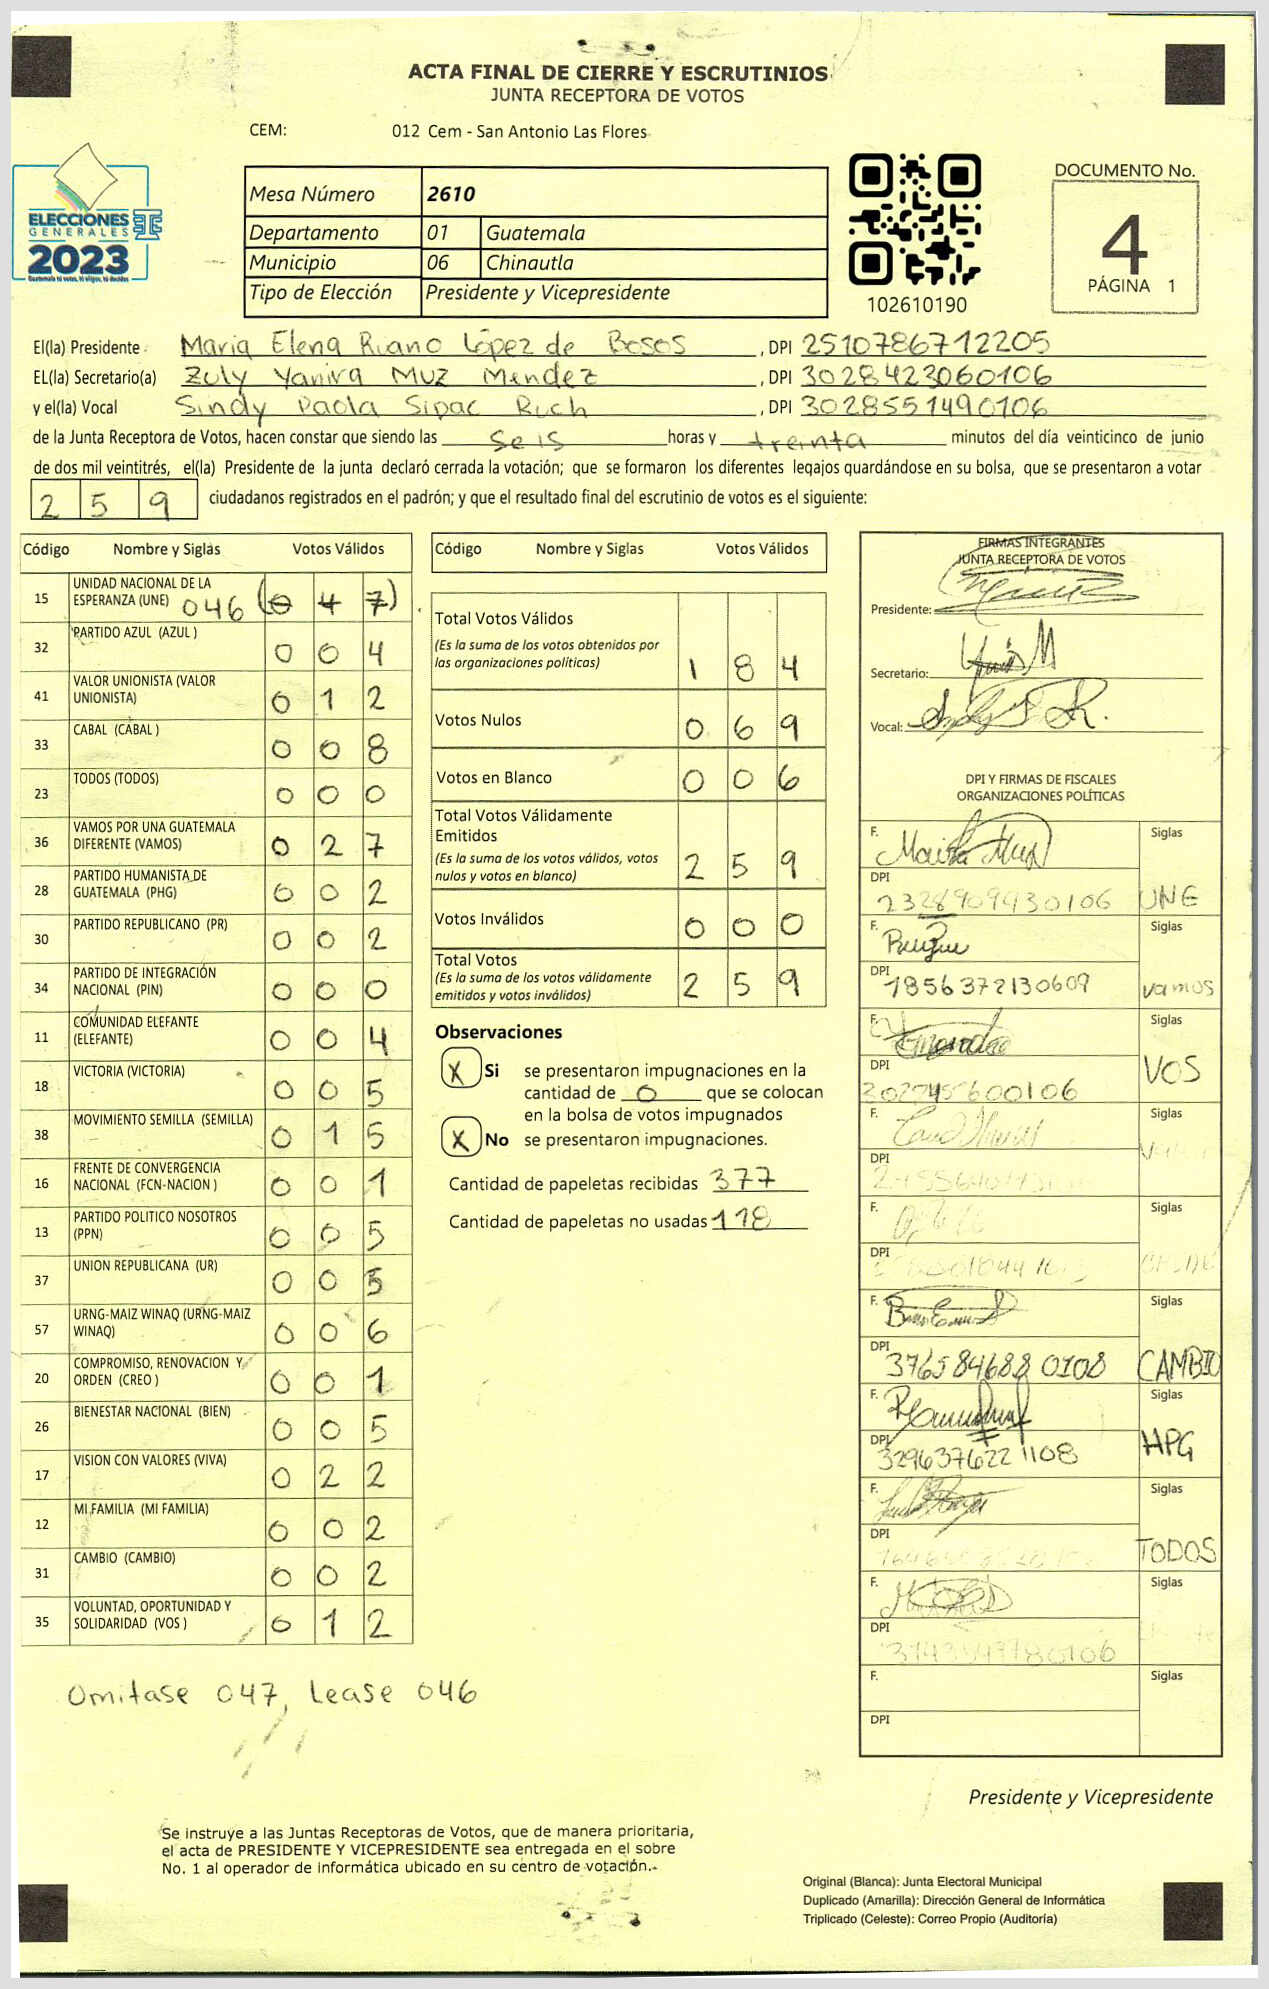 ACTA FINAL DE CIERRE Y ESCRUTINIOS
JUNTA RECEPTORA DE VOTOS
CEM: 012 Cem - San Antonio Las Flores
ELECCIONES
GENERALES
2023
Mesa Número 2610
Departamento 01 Guatemala
Municipio 06 Chinautla
Tipo de Elección Presidente y Vicepresidente
102610190
DOCUMENTO No.
4
PÁGINA 1
El(la) Presidente Maria Elena Ruano López de Bosos, DPI 2510786712205
EL(la) Secretario(a) Zuly Yanira Muz Mendez, DPI 3028423060106
y el(la) Vocal Sindy Paola Sipac Ruch, DPI 3028551490106
de la Junta Receptora de Votos, hacen constar que siendo las seis horas y treinta minutos del día veinticinco de junio
de dos mil veintitrés, el(la) Presidente de la junta declaró cerrada la votación; que se formaron los diferentes legajos quardándose en su bolsa, que se presentaron a votar
2 5 9 ciudadanos registrados en el padrón; y que el resultado final del escrutinio de votos es el siguiente:
Código Nombre y Siglas Votos Válidos
15 UNIDAD NACIONAL DE LA ESPERANZA (UNE) 046 (0 4 7)
32 PARTIDO AZUL (AZUL ) 0 0 4
41 VALOR UNIONISTA (VALOR UNIONISTA) 0 1 2
33 CABAL (CABAL ) 0 0 8
23 TODOS (TODOS) 0 0 0
36 VAMOS POR UNA GUATEMALA DIFERENTE (VAMOS) 0 2 7
28 PARTIDO HUMANISTA DE GUATEMALA (PHG) 0 0 2
30 PARTIDO REPUBLICANO (PR) 0 0 2
34 PARTIDO DE INTEGRACIÓN NACIONAL (PIN) 0 0 0
11 COMUNIDAD ELEFANTE (ELEFANTE) 0 0 4
18 VICTORIA (VICTORIA) 0 0 5
38 MOVIMIENTO SEMILLA (SEMILLA) 0 1 5
16 FRENTE DE CONVERGENCIA NACIONAL (FCN-NACION ) 0 0 1
13 PARTIDO POLITICO NOSOTROS (PPN) 0 0 5
37 UNION REPUBLICANA (UR) 0 0 5
57 URNG-MAIZ WINAQ (URNG-MAIZ WINAQ) 0 0 6
20 COMPROMISO, RENOVACION Y ORDEN (CREO ) 0 0 1
26 BIENESTAR NACIONAL (BIEN) 0 0 5
17 VISION CON VALORES (VIVA) 0 2 2
12 MI FAMILIA (MI FAMILIA) 0 0 2
31 CAMBIO (CAMBIO) 0 0 2
35 VOLUNTAD, OPORTUNIDAD Y SOLIDARIDAD (VOS ) 0 1 2
Omitase 047, Lease 046
Código Nombre y Siglas Votos Válidos
Total Votos Válidos
(Es la suma de los votos obtenidos por
las organizaciones políticas) 1 8 4
Votos Nulos 0 6 9
Votos en Blanco 0 0 6
Total Votos Válidamente
Emitidos
(Es la suma de los votos válidos, votos
nulos y votos en blanco) 2 5 9
Votos Inválidos 0 0 0
Total Votos
(Es la suma de los votos válidamente
emitidos y votos inválidos) 2 5 9
Observaciones
X Si se presentaron impugnaciones en la
cantidad de 0 que se colocan
en la bolsa de votos impugnados
X No se presentaron impugnaciones.
Cantidad de papeletas recibidas 377
Cantidad de papeletas no usadas 118
FIRMAS INTEGRANTES
JUNTA RECEPTORA DE VOTOS
Presidente:
Secretario:
Vocal:
DPI Y FIRMAS DE FISCALES
ORGANIZACIONES POLÍTICAS
F. Siglas
DPI
2328909430106 UNE
F. Siglas
DPI
1856372130609 vamos
F. Siglas
DPI VOS
F. Siglas
DPI
F. Siglas
DPI
F. Siglas
DPI
3765846880108 CAMBIO
F. Siglas
DPI
3296376221108 HPG
F. Siglas
DPI
TODOS
F. Siglas
DPI
F. Siglas
DPI
Presidente y Vicepresidente
Se instruye a las Juntas Receptoras de Votos, que de manera prioritaria,
el acta de PRESIDENTE Y VICEPRESIDENTE sea entregada en el sobre
No. 1 al operador de informática ubicado en su centro de votación.
Original (Blanca): Junta Electoral Municipal
Duplicado (Amarilla): Dirección General de Informática
Triplicado (Celeste): Correo Propio (Auditoría)